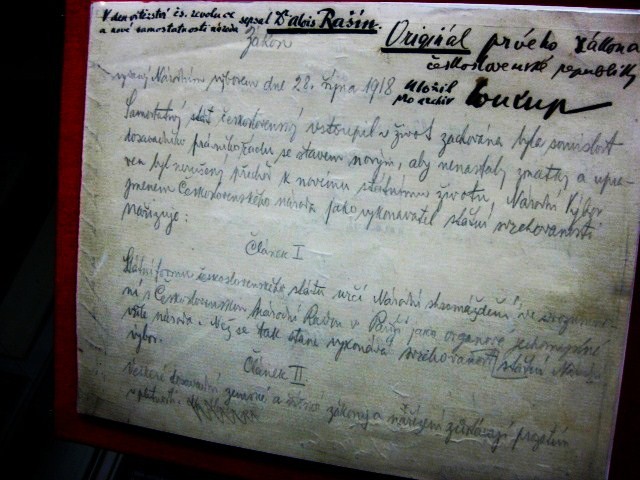 V den vítězství čs. revoluce
a nové samostatnosti národa sepsal Dr Alois Rašín.
Originál prvého zákona
československé republiky
Uložil
pro archiv Soukup
Zákon
vydaný Národním výborem dne 28. října 1918
Samostatný stát československý vstoupil v život. zachována byla souvislost
dosavadního právního řádu se stavem novým, aby nenastaly zmatky a upra-
ven byl nerušený přechod k novému státnímu životu, Národní Výbor
jménem Československého národa jako vykonavatel státní svrchovanosti
nařizuje:
Článek I
Státní formu československého státu určí Národní shromáždění ve srozumě-
ní s Československou Národní Radou v Paříži jako orgánové jednomyslné
vůle národa. Než se tak stane vykonává svrchovanost státní Národní
výbor.
Článek II.
Veškeré dosavadní zemské a říšské zákony a nařízení zůstávají prozatím
v platnosti.